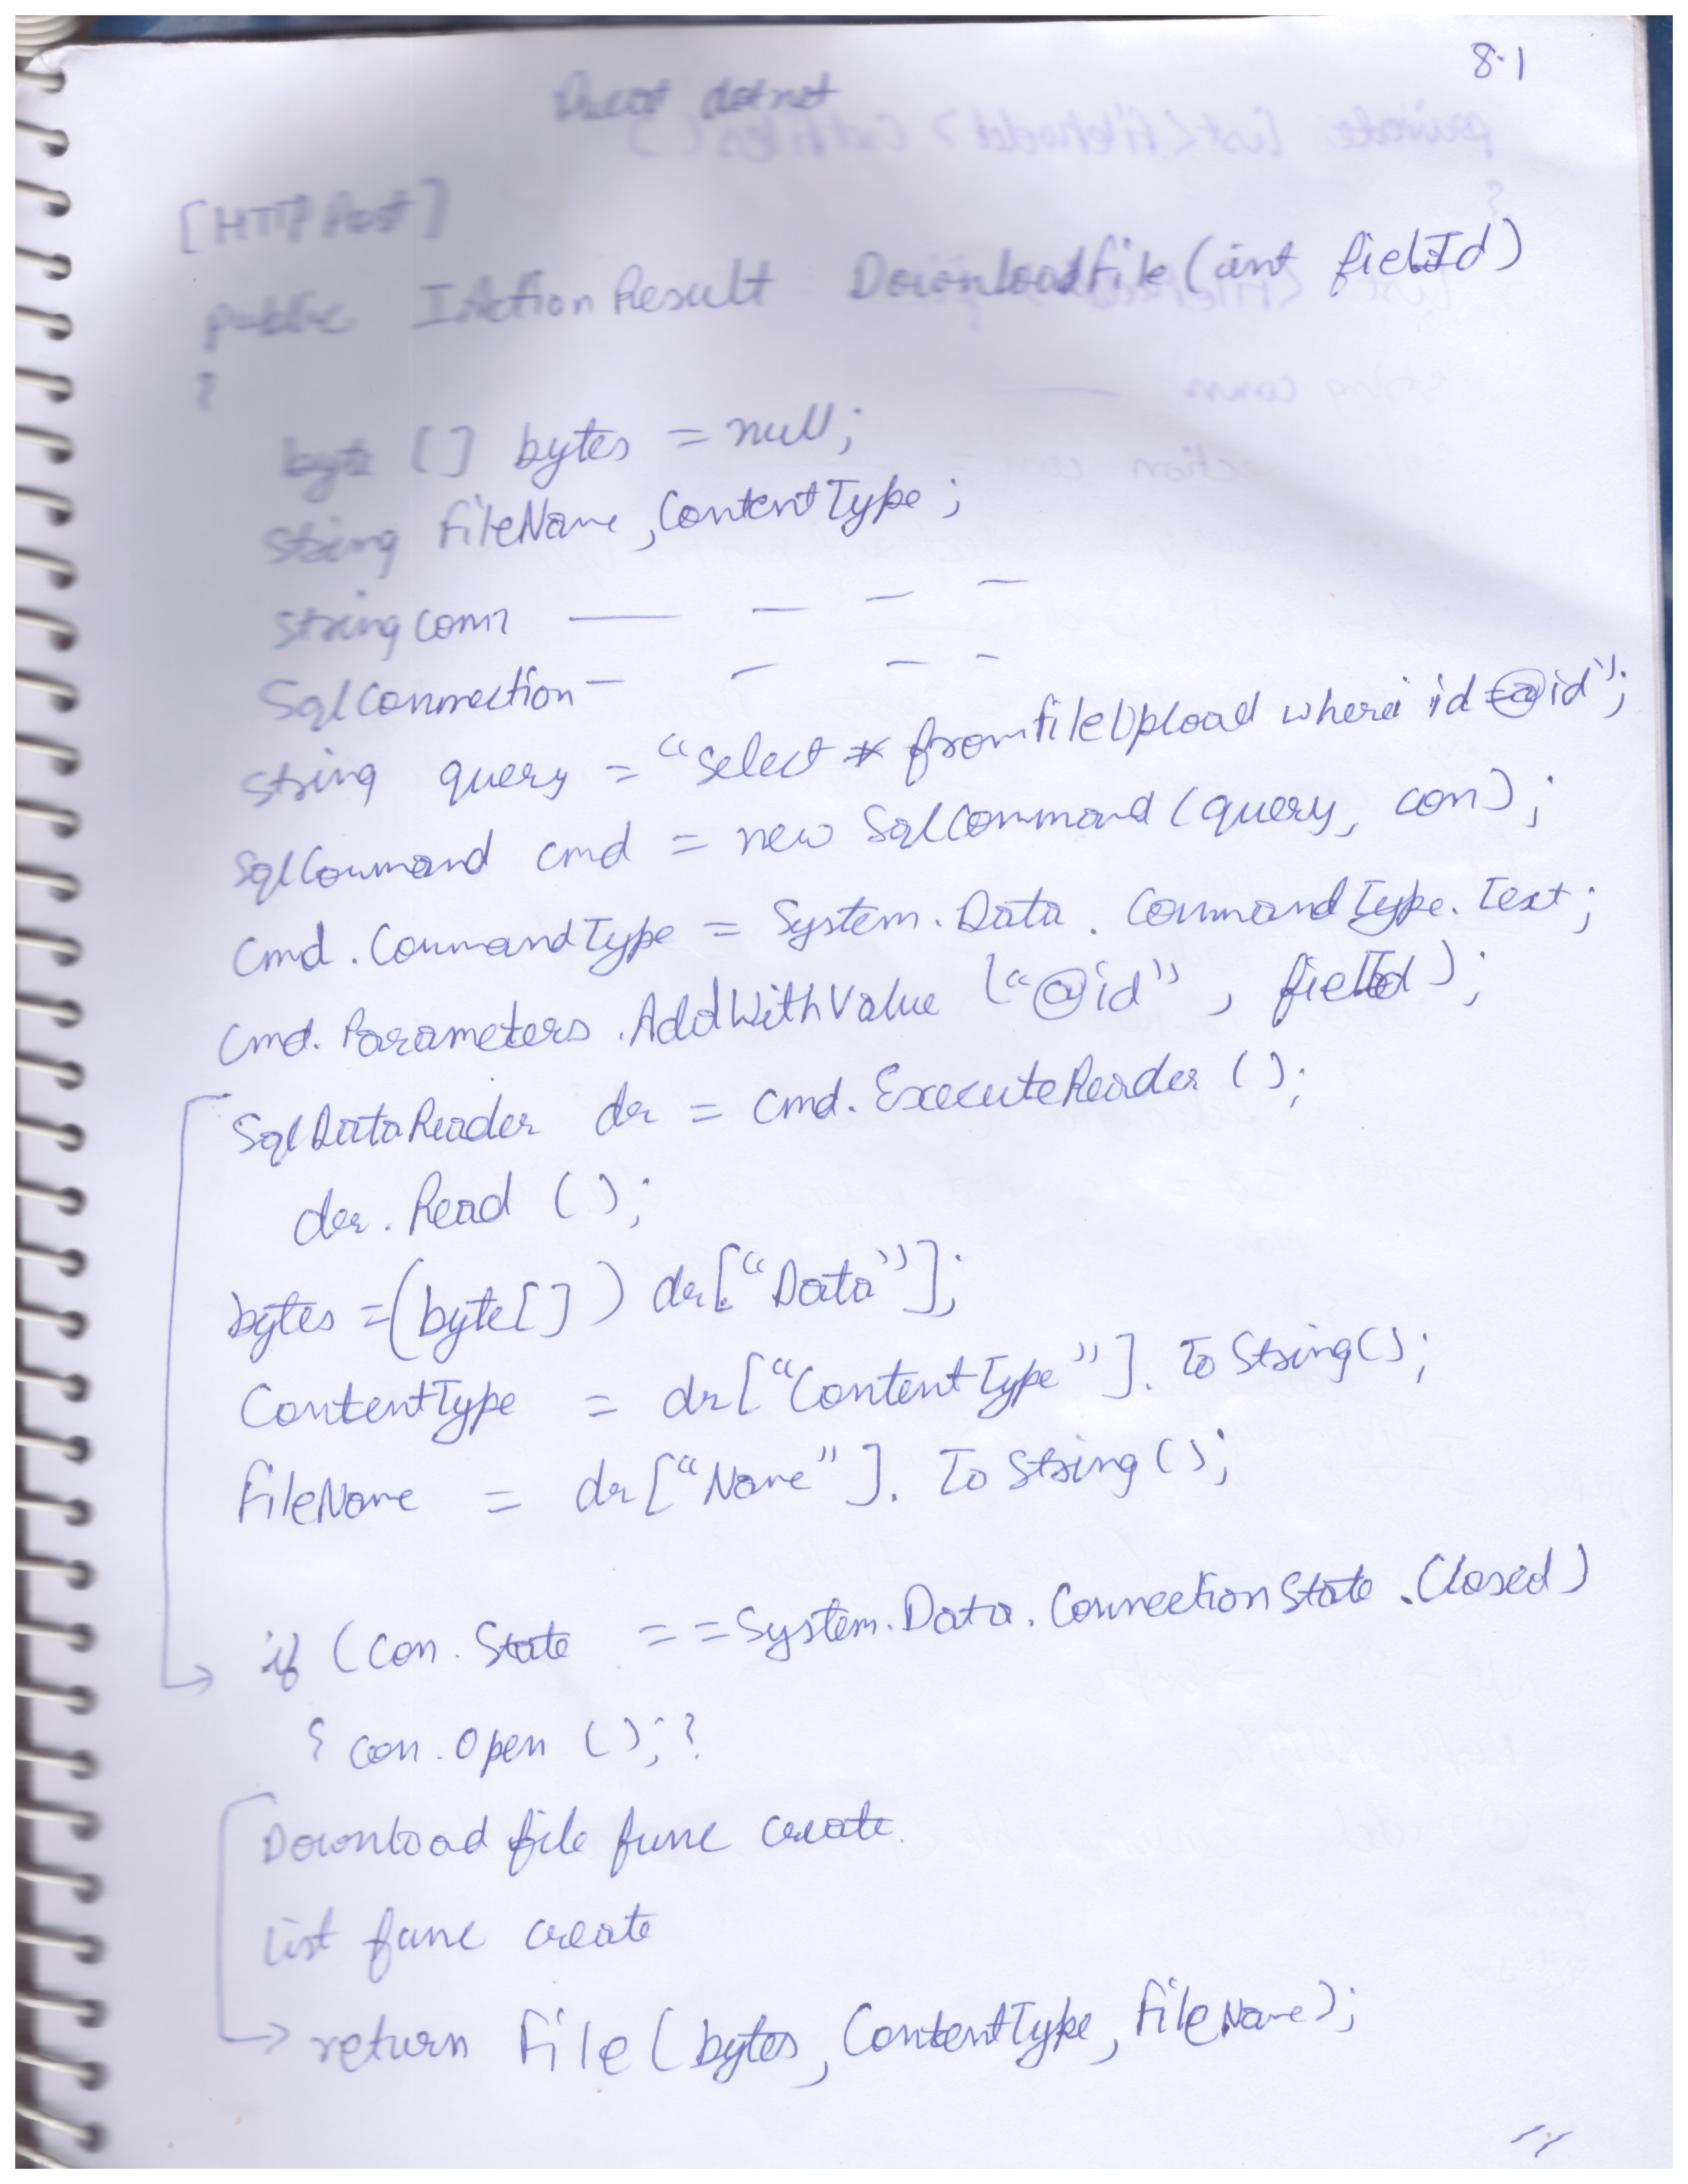 8.1
dotnet
[HTTP Post]
public IActionResult Downloadfile (int fieldId)
{
byte [] bytes = null;
string fileName, ContentType;
string conn — — — —
SqlConnection — — — —
string query = "select * from fileUpload where id = @id";
SqlCommand cmd = new SqlCommand (query, con);
cmd.CommandType = System.Data.CommandType.Text;
cmd.Parameters.AddWithValue ("@id", fieldId);
SqlDataReader dr = cmd.ExecuteReader ();
dr.Read ();
bytes = (byte[]) dr["Data"];
ContentType = dr["ContentType"].ToString();
fileName = dr["Name"].ToString();
if (con.State == System.Data.ConnectionState.Closed)
{ con.open (); }
Download file func create.
List func create
return File (bytes, ContentType, fileName);